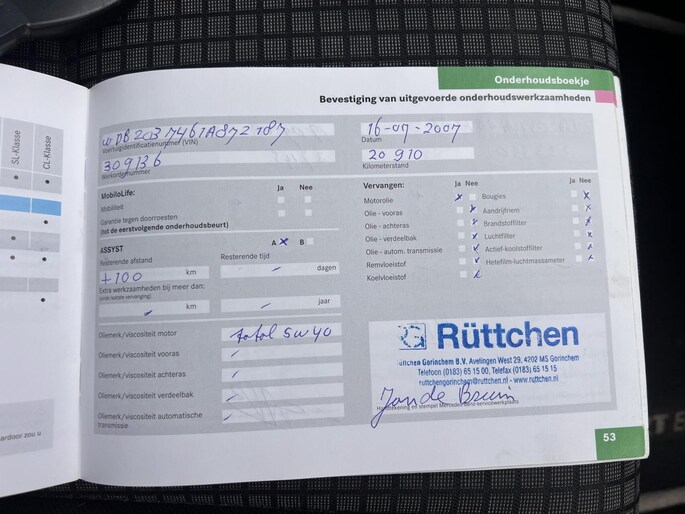 SL-Klasse
CL-Klasse
Onderhoudsboekje
Bevestiging van uitgevoerde onderhoudswerkzaamheden
WDB2037461A872187
Voertuigidentificatienummer (VIN)
16-07-2007
Datum
309136
Werkordernummer
20 910
Kilometerstand
MobiloLife: Ja Nee
Mobiliteit
Garantie tegen doorroesten
(tot de eerstvolgende onderhoudsbeurt)
ASSYST A x B
Resterende afstand Resterende tijd
+100 km - dagen
Extra werkzaamheden bij meer dan:
km - jaar
Vervangen: Ja Nee Ja Nee
Motorolie x Bougies x
Olie - vooras x Aandrijfriem x
Olie - achteras x Brandstoffilter x
Olie - verdeelbak x Luchtfilter x
Olie - autom. transmissie x Actief-koolstoffilter x
Remvloeistof x Hetefilm-luchtmassameter x
Koelvloeistof x
Oliemerk/viscositeit motor total 5W40
Oliemerk/viscositeit vooras -
Oliemerk/viscositeit achteras -
Oliemerk/viscositeit verdeelbak -
Oliemerk/viscositeit automatische
transmissie -
Rüttchen
Gorinchem B.V. Avelingen West 29, 4202 MS Gorinchem
Telefoon (0183) 65 15 00, Telefax (0183) 65 15 15
ruttchengorinchem@ruttchen.nl - www.ruttchen.nl
Jan de Bruin
ardoor zou u
53